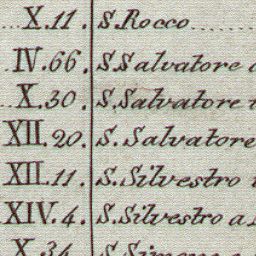 X.11. S. Rocco
IV.66. S. Salvatore
X.30. S. Salvatore
XII.20. S. Salvatore
XII.11. S. Silvestro
XIV.4. S. Silvestro a
X.34. S. Simone